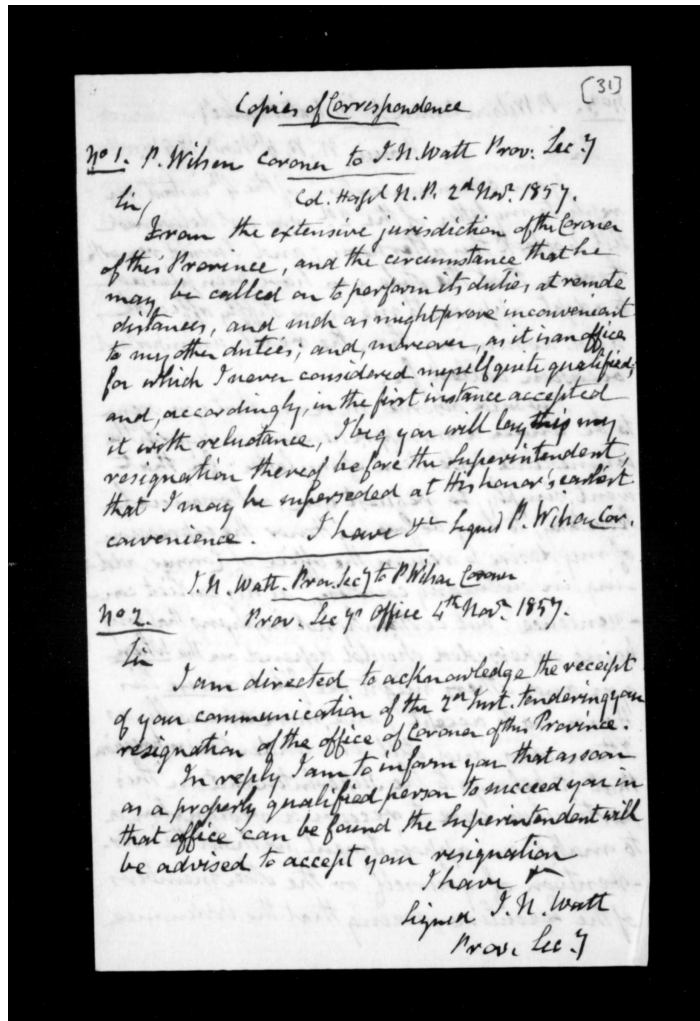 [31]
Copies of Correspondence
No 1. P. Wilson Coroner to I. N. Watt Prov. Sec.y
Col. Hospl N. P. 2nd Novr. 1857.
Sir,
From the extensive jurisdiction of the Coroner
of this Province, and the circumstance that he
may be called on to perform its duties at remote
distances, and such as might prove inconvenient
to my other duties; and, moreover, as it is an office
for which I never considered myself quite qualified;
and, accordingly, in the first instance accepted
it with reluctance, I beg you will lay this my
resignation thereof before the Superintendent,
that I may be superseded at His honor's earliest
convenience. I have &c Signed P. Wilson Cor.
I. N. Watt. Prov. Sec.y to P Wilson Coroner
No 2. Prov. Sec.ys Office 4th Novr. 1857.
Sir
I am directed to acknowledge the receipt
of your communication of the 2nd Inst. tendering your
resignation of the office of Coroner of this Province.
In reply I am to inform you that as soon
as a properly qualified person to succeed you in
that office can be found the Superintendent will
be advised to accept your resignation
I have &c
Signed I. N. Watt
Prov. Sec.y